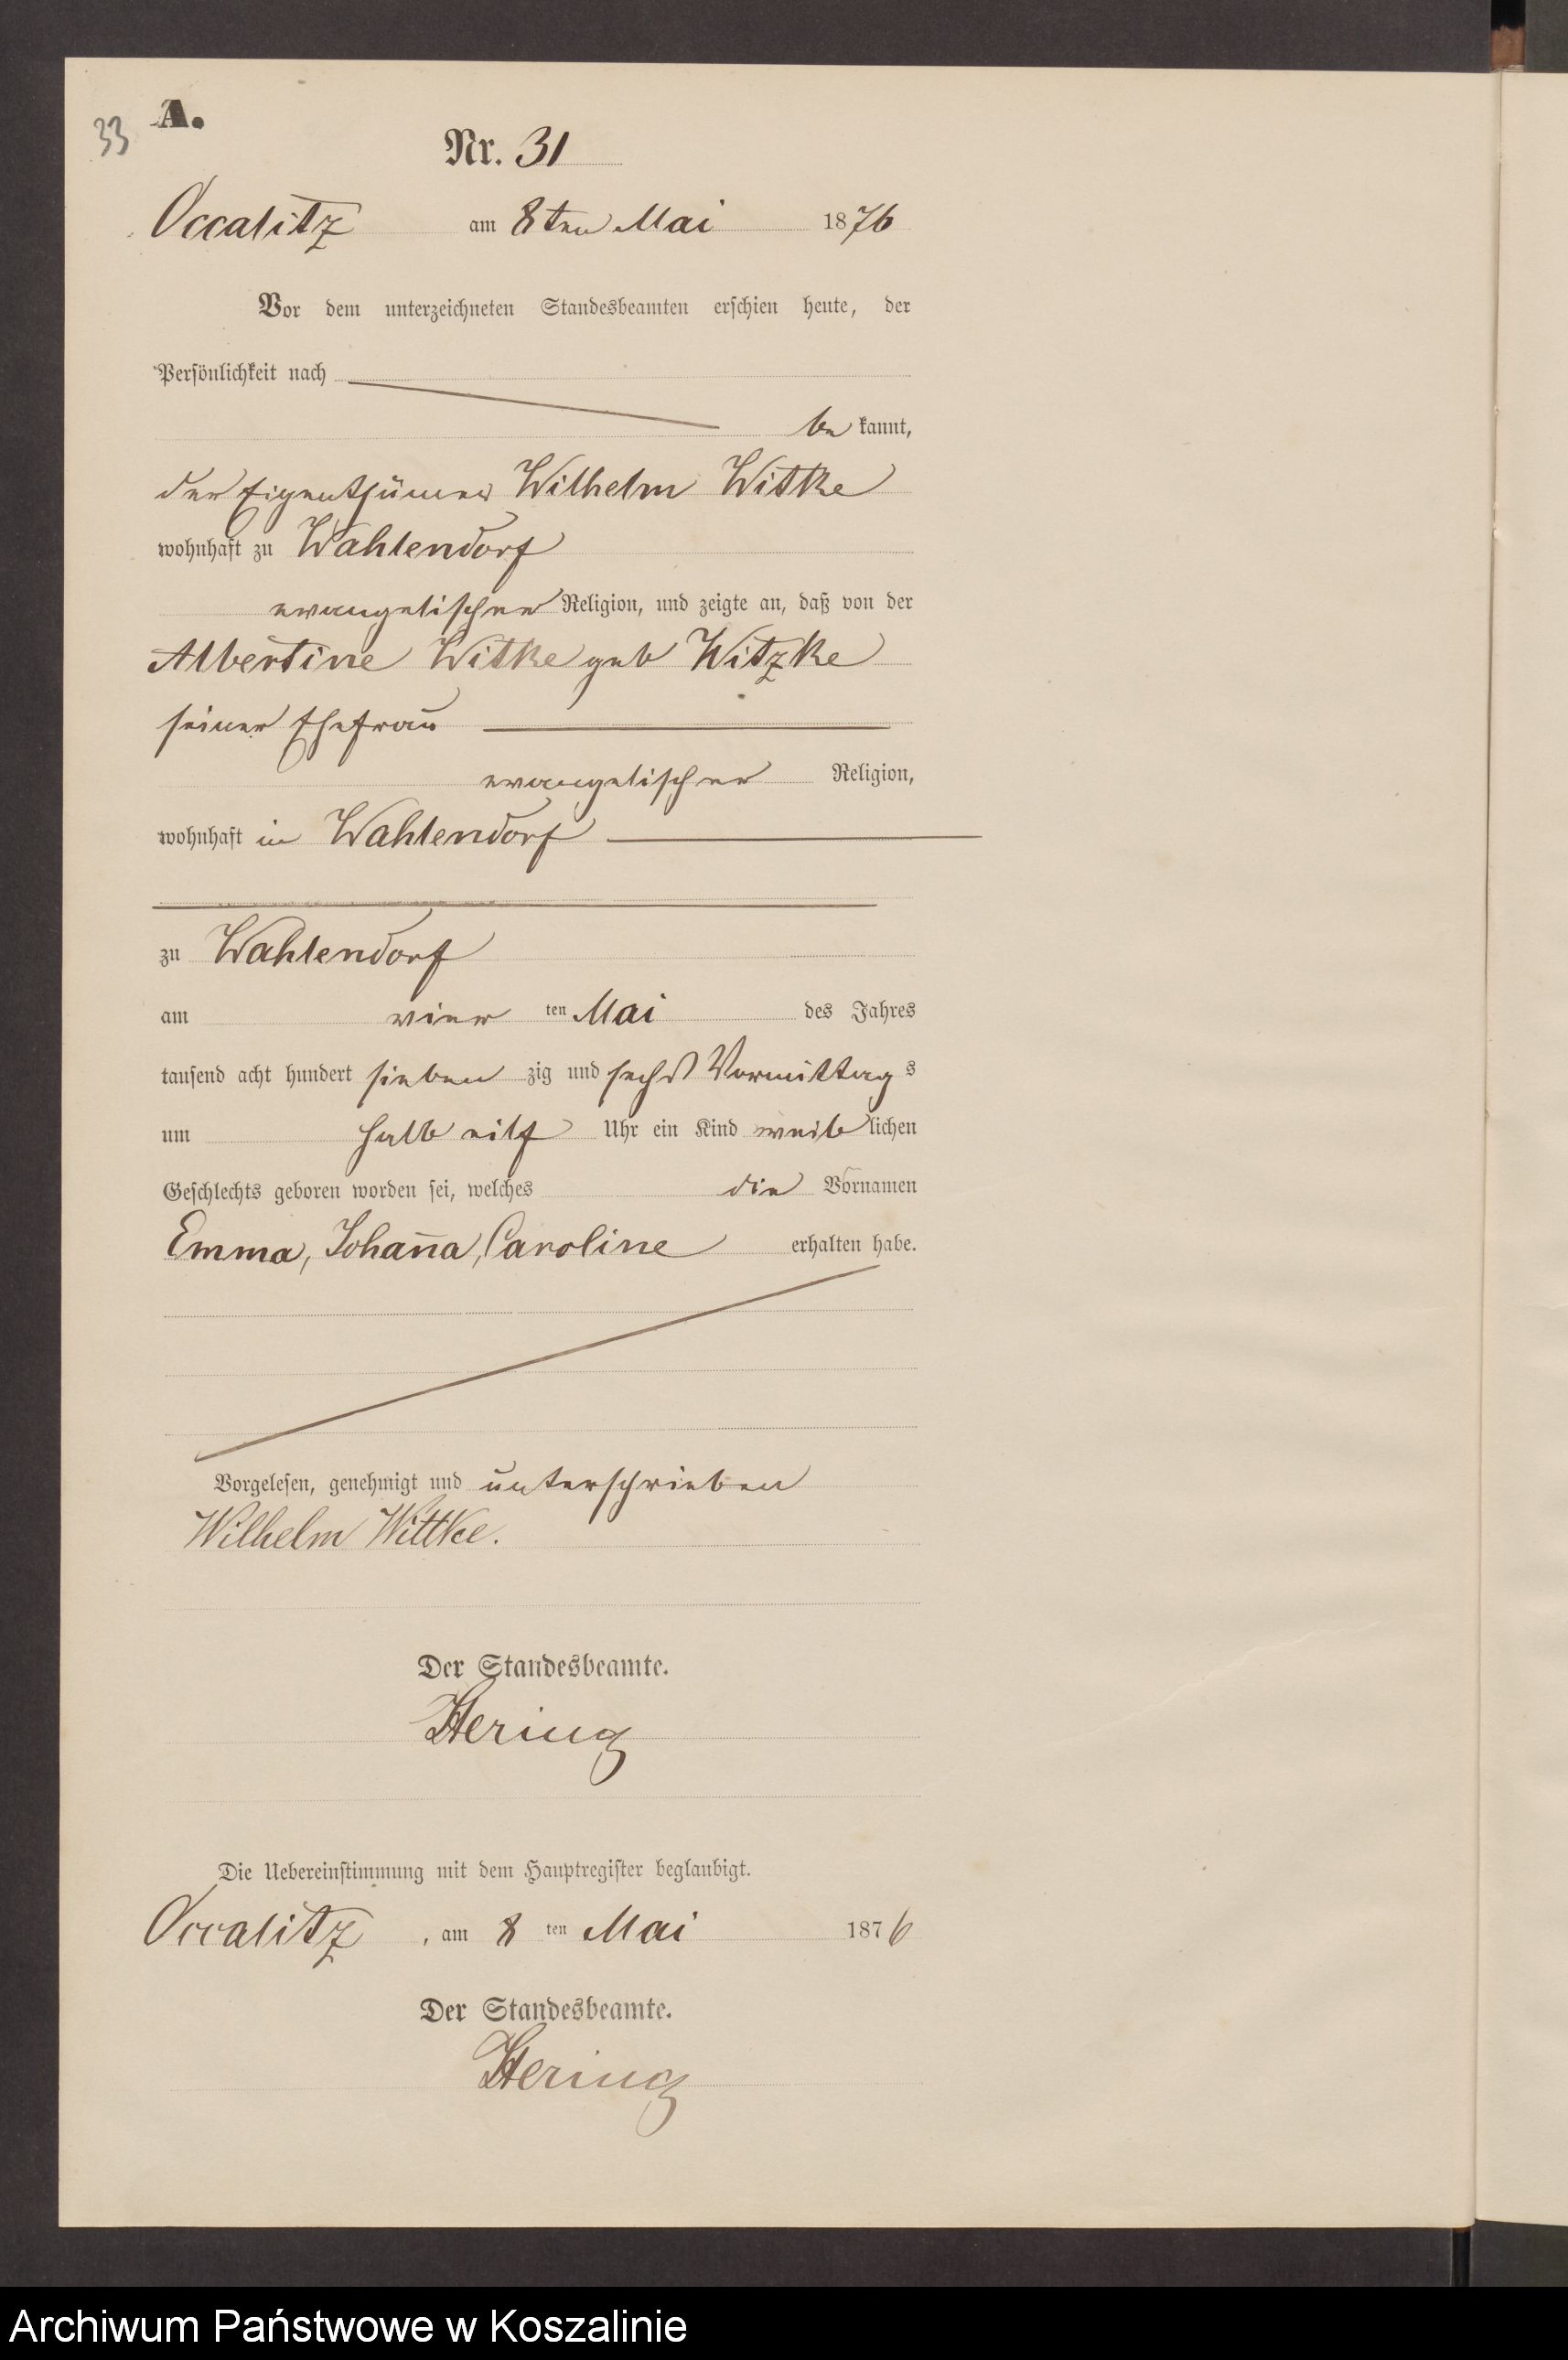 33
A.
Nr. 31
Occalitz am 8ten Mai 1876
Vor dem unterzeichneten Standesbeamten erschien heute, der
Persönlichkeit nach
be kannt,
der Eigenthümer Wilhelm Witke
wohnhaft zu Wahlendorf
evangelischer Religion, und zeigte an, daß von der
Albertine Witke geb Witzke
seiner Ehefrau
evangelischer Religion,
wohnhaft in Wahlendorf
zu Wahlendorf
am vier ten Mai des Jahres
tausend acht hundert sieben zig und sechs Vormittag s
um halb eilf Uhr ein Kind weib lichen
Geschlechts geboren worden sei, welches die Vornamen
Emma, Johan̄a, Caroline erhalten habe.
Vorgelesen, genehmigt und unterschrieben
Wilhelm Wittke.
Der Standesbeamte.
Hering
Die Uebereinstimmung mit dem Hauptregister beglaubigt.
Occalitz, am 8 ten Mai 1876
Der Standesbeamte.
Hering
Archiwum Państwowe w Koszalinie